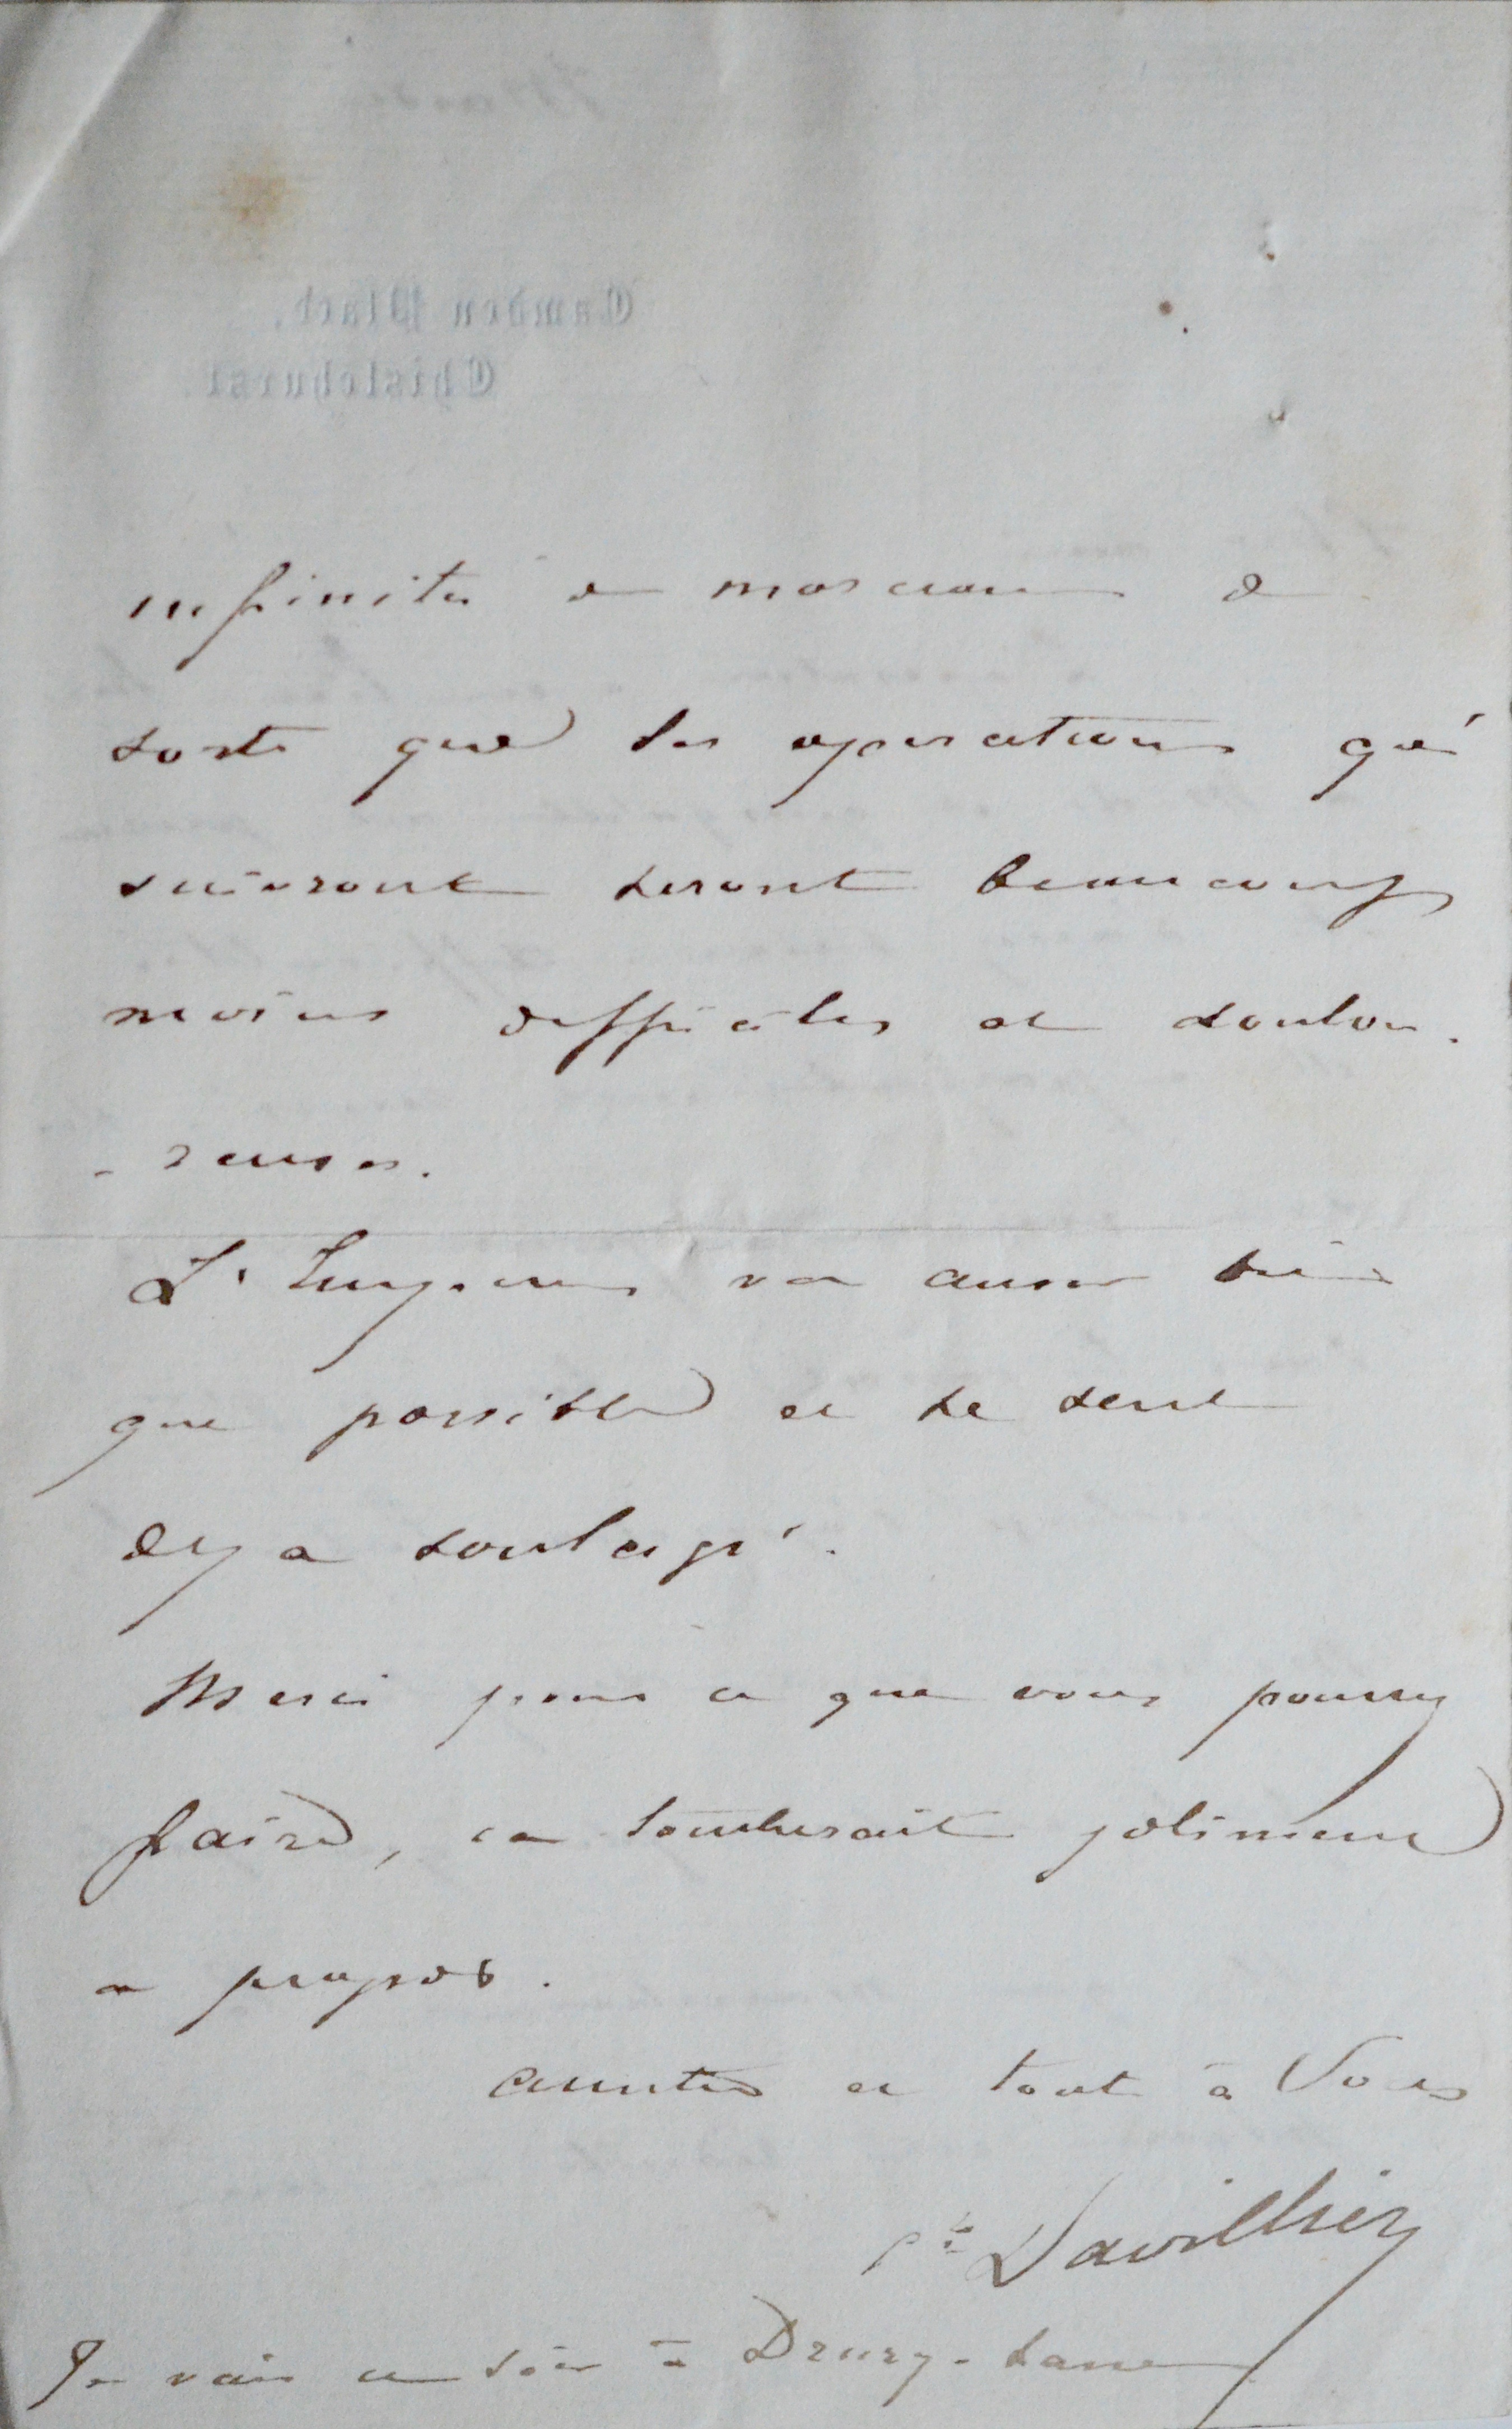 Camden Place,
Chislehurst.
infinité de morceaux de
sorte que les operations qui
suivront seront beaucoup
moins difficiles et doulou-
-reuses.
L'Empereur va aussi bien
que possible et se sent
deja soulagé.
Merci pour ce que vous pourrez
faire, ca tomberait joliment
a propos.
amities et tout à Vous
Cte Davillier
Je vais ce soir à Drury-Lane